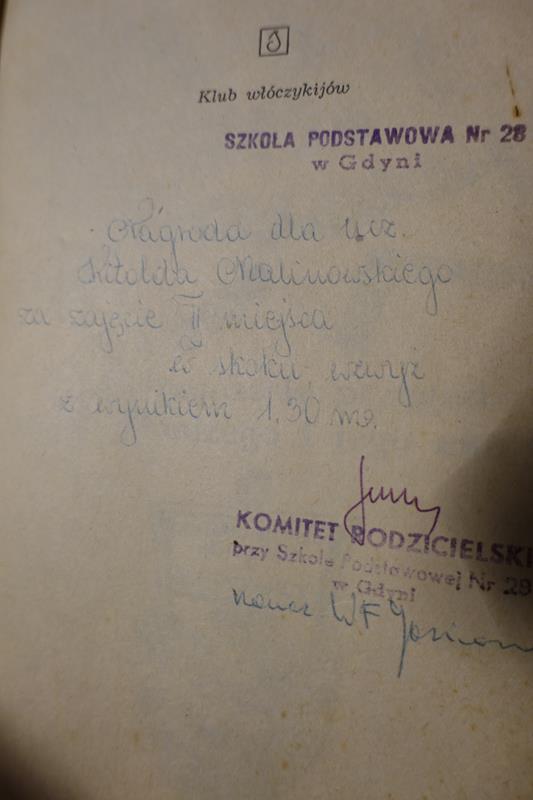 Klub włóczykijów
SZKOŁA PODSTAWOWA Nr 28
w Gdyni
Nagroda dla ucz.
Witolda Malinowskiego
za zajęcie II miejsca
w skoku wzwyż
z wynikiem 1.30 m.
KOMITET RODZICIELSKI
przy Szkole Podstawowej Nr 28
w Gdyni
naucz WF